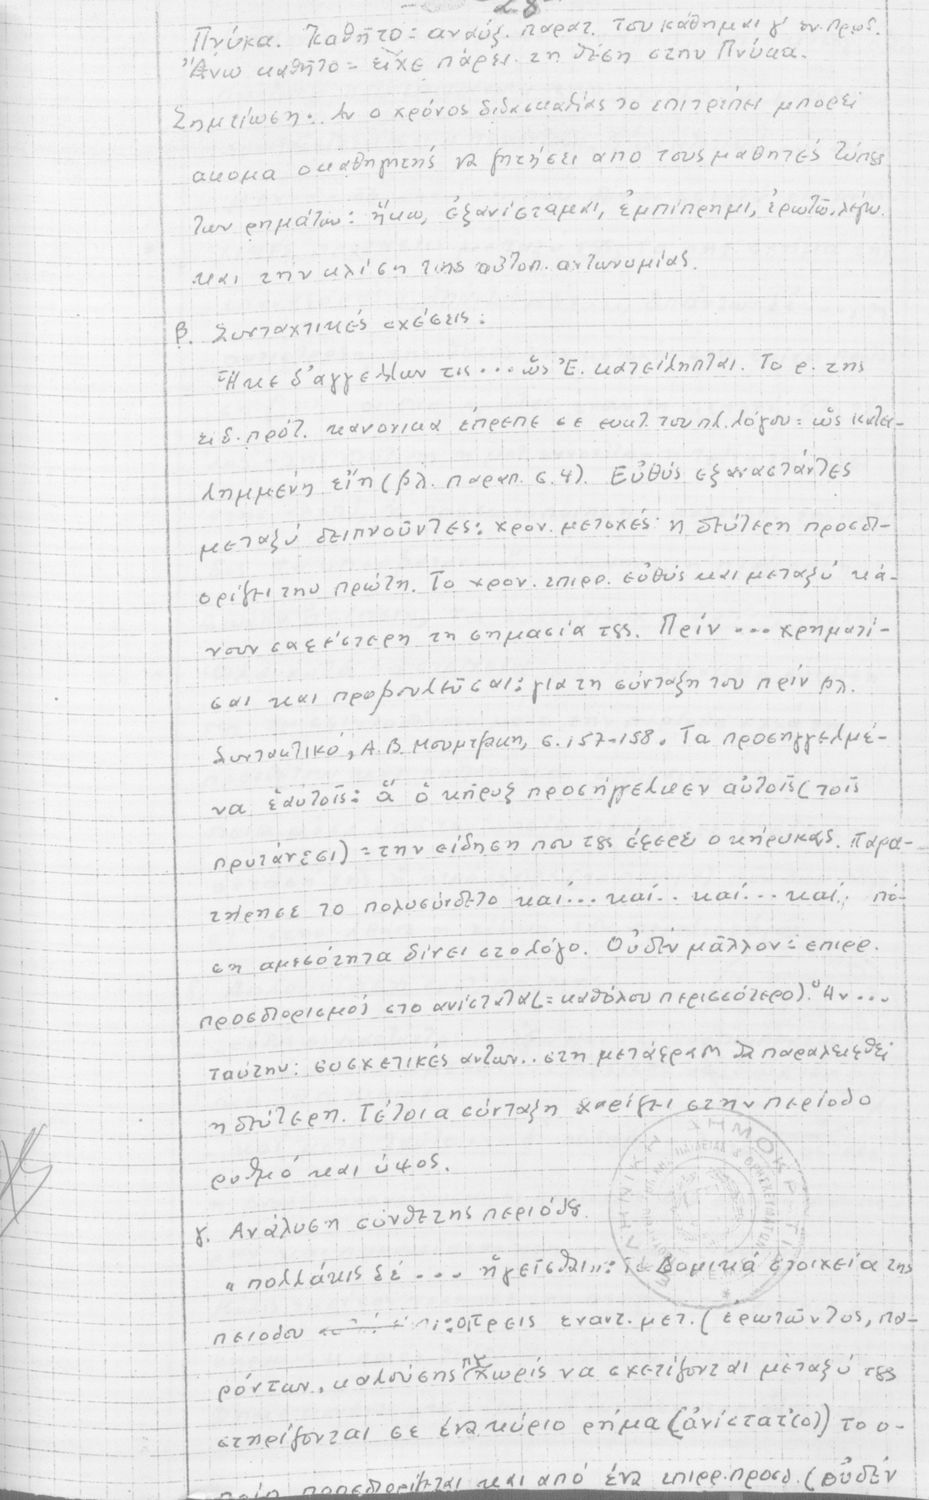 -28-
Πνύκα. Καθῆτο = αναύξ. παρατ. του κάθημαι γ' εν. προσ.
Ἄνω καθῆτο = είχε πάρει τη θέση στην Πνύκα.
Σημείωση. Αν ο χρόνος διδασκαλίας το επιτρέπει μπορεί
ακομα ο καθηγητής να ζητήσει απο τους μαθητές τύπους
των ρημάτων: ἥκω, ἐξανίσταμαι, ἐμπίπρημι, ἐρωτῶ, λέγω
και την κλίση της αυτοπ. αντωνυμίας.
β. Συνταχτικές σχέσεις:
Ἧκε δ' αγγέλλων τις ... ὡς Ἐ. κατείληπται. Το ρ. της
ειδ. πρότ. κανονικα έπρεπε σε ευκτ. του πλ. λόγου: ὡς κατει-
λημμένη εἴη (βλ. παραπ. σ. 4). Εὐθύς εξαναστάντες
μεταξύ δειπνοῦντες: χρον. μετοχές· η δεύτερη προσδι-
ορίζει την πρώτη. Το χρον. επιρρ. εὐθύς και μεταξύ κά-
νουν σαφέστερη τη σημασία τους. Πρίν ... χρηματί-
σαι και προβουλεῦσαι: για τη σύνταξη του πρίν βλ.
Συντακτικό, Α.Β. Μουμτζακη, σ. 157-158. Τα προσηγγελμέ-
να ἑαυτοῖς: ἅ ὁ κῆρυξ προσήγγειλεν αὐτοῖς (τοῖς
πρυτάνεσι) = την είδηση που τους έφερε ο κήρυκας. Παρα-
τήρησε το πολυσύνδετο καί... καί.. καί... καί, πό-
ση αμεσότητα δίνει στο λόγο. Οὐδέν μᾶλλον = επιρρ.
προσδιορισμοί στο ανίστατο (= καθόλου περισσότερο). Ἥν ...
ταύτην: συσχετικές αντων.. στη μετάφραση θα παραλειφθεί
η δεύτερη. Τέτοια σύνταξη χαρίζει στην περίοδο
ρυθμό και ύφος.
γ. Ανάλυση σύνθετης περιόδου
"πολλάκις δέ ... ἡγεῖσθαι": Δομικά στοιχεία της
πειοδου: οι τρεις εναντ. μετ. (ερωτῶντος, πα-
ρόντων, καλούσης) χωρίς να σχετίζονται μεταξύ τους
στηρίζονται σε ένα κύριο ρήμα (ἀνίστατ(ο)) το ο-
ποίο προσδιορίζεται και από ένα επιρρ. προσδ. (οὐδέν
ΕΛΛΗΝΙΚΗ ΔΗΜΟΚΡΑΤΙΑ